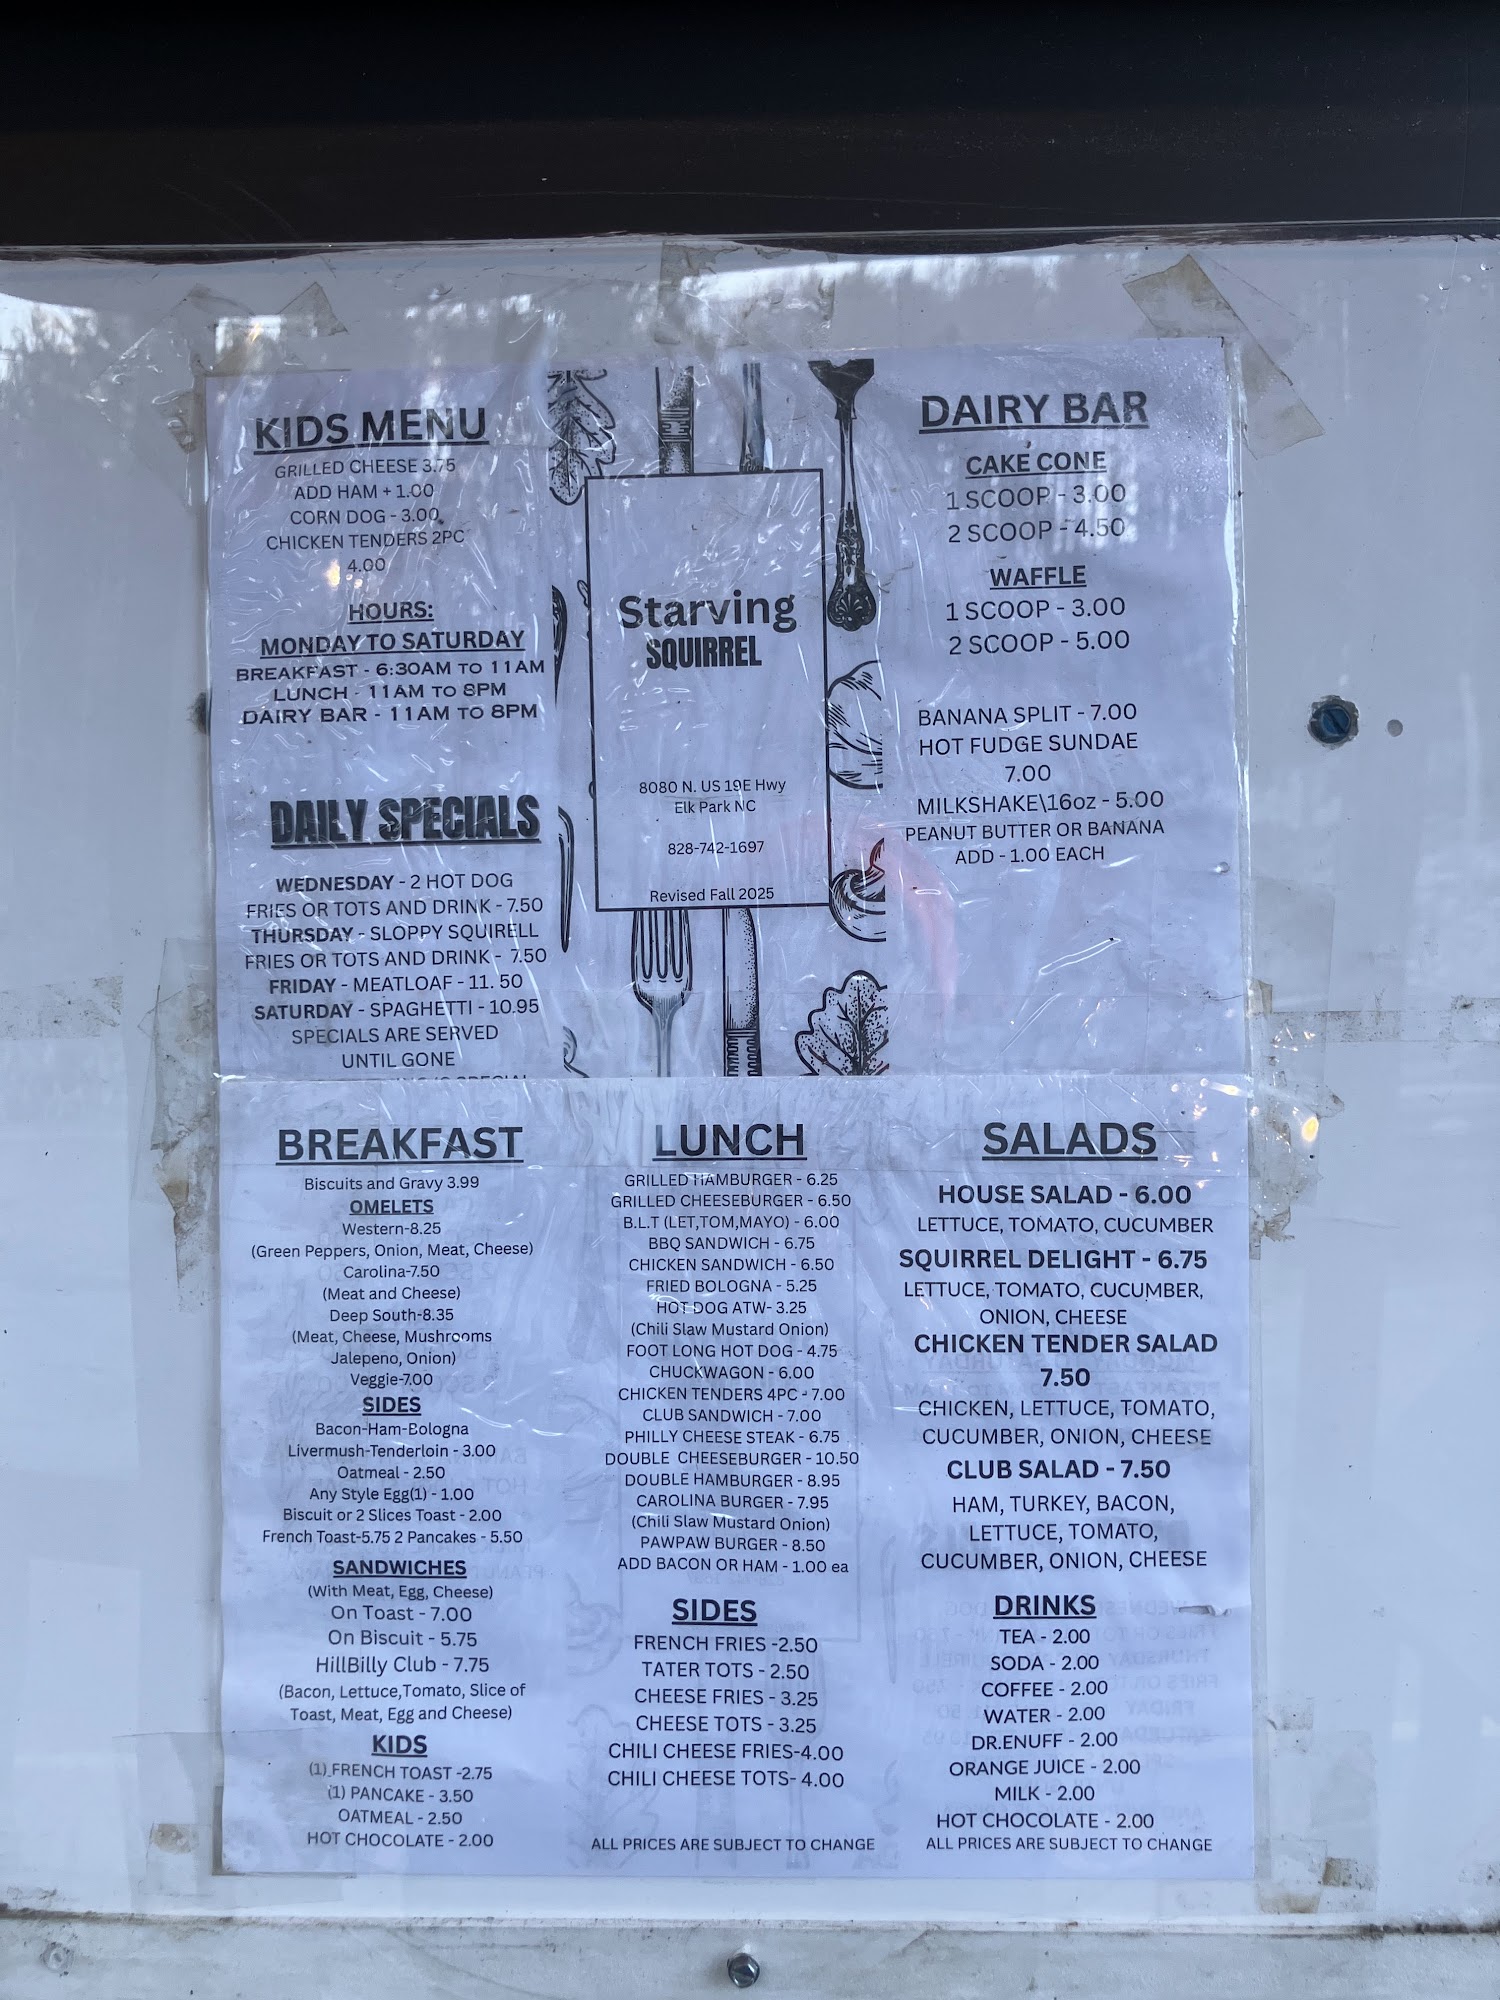 KIDS MENU
GRILLED CHEESE 3.75
ADD HAM + 1.00
CORN DOG - 3.00
CHICKEN TENDERS 2PC
4.00
HOURS:
MONDAY TO SATURDAY
BREAKFAST - 6:30AM TO 11AM
LUNCH - 11AM TO 8PM
DAIRY BAR - 11AM TO 8PM
DAILY SPECIALS
WEDNESDAY - 2 HOT DOG
FRIES OR TOTS AND DRINK - 7.50
THURSDAY - SLOPPY SQUIRELL
FRIES OR TOTS AND DRINK - 7.50
FRIDAY - MEATLOAF - 11. 50
SATURDAY - SPAGHETTI - 10.95
SPECIALS ARE SERVED
UNTIL GONE
Starving
SQUIRREL
8080 N. US 19E Hwy
Elk Park NC
828-742-1697
Revised Fall 2025
DAIRY BAR
CAKE CONE
1 SCOOP - 3.00
2 SCOOP - 4.50
WAFFLE
1 SCOOP - 3.00
2 SCOOP - 5.00
BANANA SPLIT - 7.00
HOT FUDGE SUNDAE
7.00
MILKSHAKE\16oz - 5.00
PEANUT BUTTER OR BANANA
ADD - 1.00 EACH
BREAKFAST
Biscuits and Gravy 3.99
OMELETS
Western-8.25
(Green Peppers, Onion, Meat, Cheese)
Carolina-7.50
(Meat and Cheese)
Deep South-8.35
(Meat, Cheese, Mushrooms
Jalepeno, Onion)
Veggie-7.00
SIDES
Bacon-Ham-Bologna
Livermush-Tenderloin - 3.00
Oatmeal - 2.50
Any Style Egg(1) - 1.00
Biscuit or 2 Slices Toast - 2.00
French Toast-5.75 2 Pancakes - 5.50
SANDWICHES
(With Meat, Egg, Cheese)
On Toast - 7.00
On Biscuit - 5.75
HillBilly Club - 7.75
(Bacon, Lettuce,Tomato, Slice of
Toast, Meat, Egg and Cheese)
KIDS
(1) FRENCH TOAST -2.75
(1) PANCAKE - 3.50
OATMEAL - 2.50
HOT CHOCOLATE - 2.00
LUNCH
GRILLED HAMBURGER - 6.25
GRILLED CHEESEBURGER - 6.50
B.L.T (LET,TOM,MAYO) - 6.00
BBQ SANDWICH - 6.75
CHICKEN SANDWICH - 6.50
FRIED BOLOGNA - 5.25
HOT DOG ATW- 3.25
(Chili Slaw Mustard Onion)
FOOT LONG HOT DOG - 4.75
CHUCKWAGON - 6.00
CHICKEN TENDERS 4PC - 7.00
CLUB SANDWICH - 7.00
PHILLY CHEESE STEAK - 6.75
DOUBLE CHEESEBURGER - 10.50
DOUBLE HAMBURGER - 8.95
CAROLINA BURGER - 7.95
(Chili Slaw Mustard Onion)
PAWPAW BURGER - 8.50
ADD BACON OR HAM - 1.00 ea
SIDES
FRENCH FRIES -2.50
TATER TOTS - 2.50
CHEESE FRIES - 3.25
CHEESE TOTS - 3.25
CHILI CHEESE FRIES-4.00
CHILI CHEESE TOTS- 4.00
ALL PRICES ARE SUBJECT TO CHANGE
SALADS
HOUSE SALAD - 6.00
LETTUCE, TOMATO, CUCUMBER
SQUIRREL DELIGHT - 6.75
LETTUCE, TOMATO, CUCUMBER,
ONION, CHEESE
CHICKEN TENDER SALAD
7.50
CHICKEN, LETTUCE, TOMATO,
CUCUMBER, ONION, CHEESE
CLUB SALAD - 7.50
HAM, TURKEY, BACON,
LETTUCE, TOMATO,
CUCUMBER, ONION, CHEESE
DRINKS
TEA - 2.00
SODA - 2.00
COFFEE - 2.00
WATER - 2.00
DR.ENUFF - 2.00
ORANGE JUICE - 2.00
MILK - 2.00
HOT CHOCOLATE - 2.00
ALL PRICES ARE SUBJECT TO CHANGE